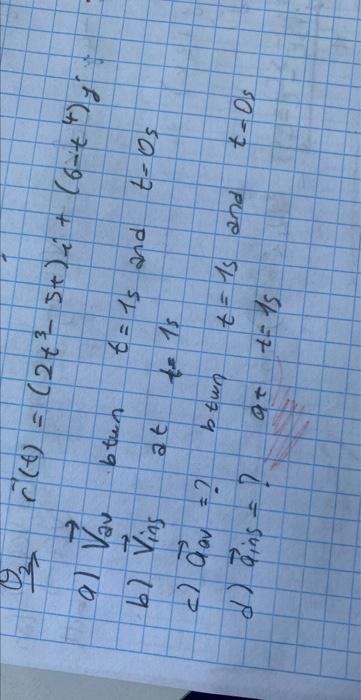 Q2 r⃗(t) = (2t³ - 5t)i + (6-t⁴)j
a) V⃗av btwn t=1s and t=0s
b) V⃗ins at t=1s
c) a⃗av =? btwn t=1s and t=0s
d) a⃗ins =? at t=1s